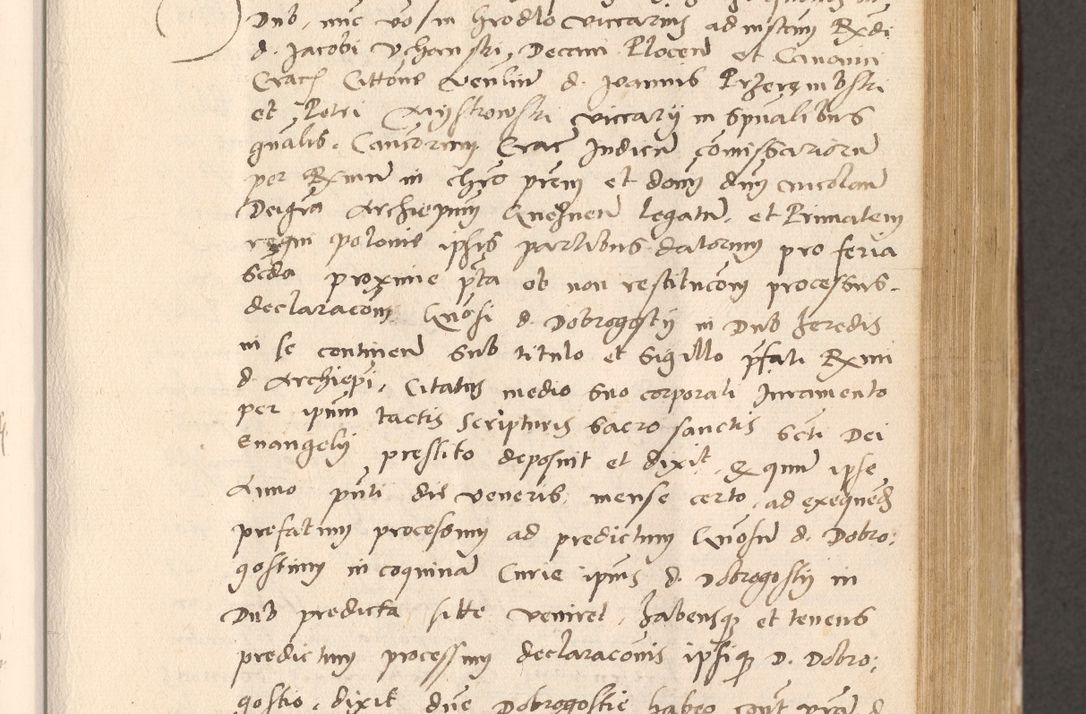 Dnb, nūc vo in hrodlo viccarius ad instan Rxdi
d. Jacobi Vchanski, Decani Plocen et Canonici
Crac Cittone Venlin d. Joannis Przerembski
et Petri Myskowski viccarij in spūalibus
gnalib. Causorum Crac Judicū comissariorū
per Rxmū in chro prem et donū dnū nicolaū
Dei gra Archiepum Gneznen legatū et Primatem
regni polonie ipsis partibus datorum pro feria
scda proxime pta ob non restitucom processus
declaracom Gnosi d. Dobrogosty in Dnb heredis
in se continen sub titulo et sigillo pfati Rxmi
d. Archiepi, Citatus medio suo corporali Juramento
per ipum tactis scripturis sacro sanctis scti Dei
Euangely prestito deposuit et dixit, Qz qum ipse
Anno pnti die veneris, mense certo, ad exequend
prefatum processum ad predictum Gnosū d. Dobro:
gostium in coquina Curie ipius d. Dobrogosty in
Dnb predicta sitte veniret, habensqz et tenens
predictum processum declaraconis ipsiqz D. Dobro:
gostio, dixit, dne Dobrogostie habeo